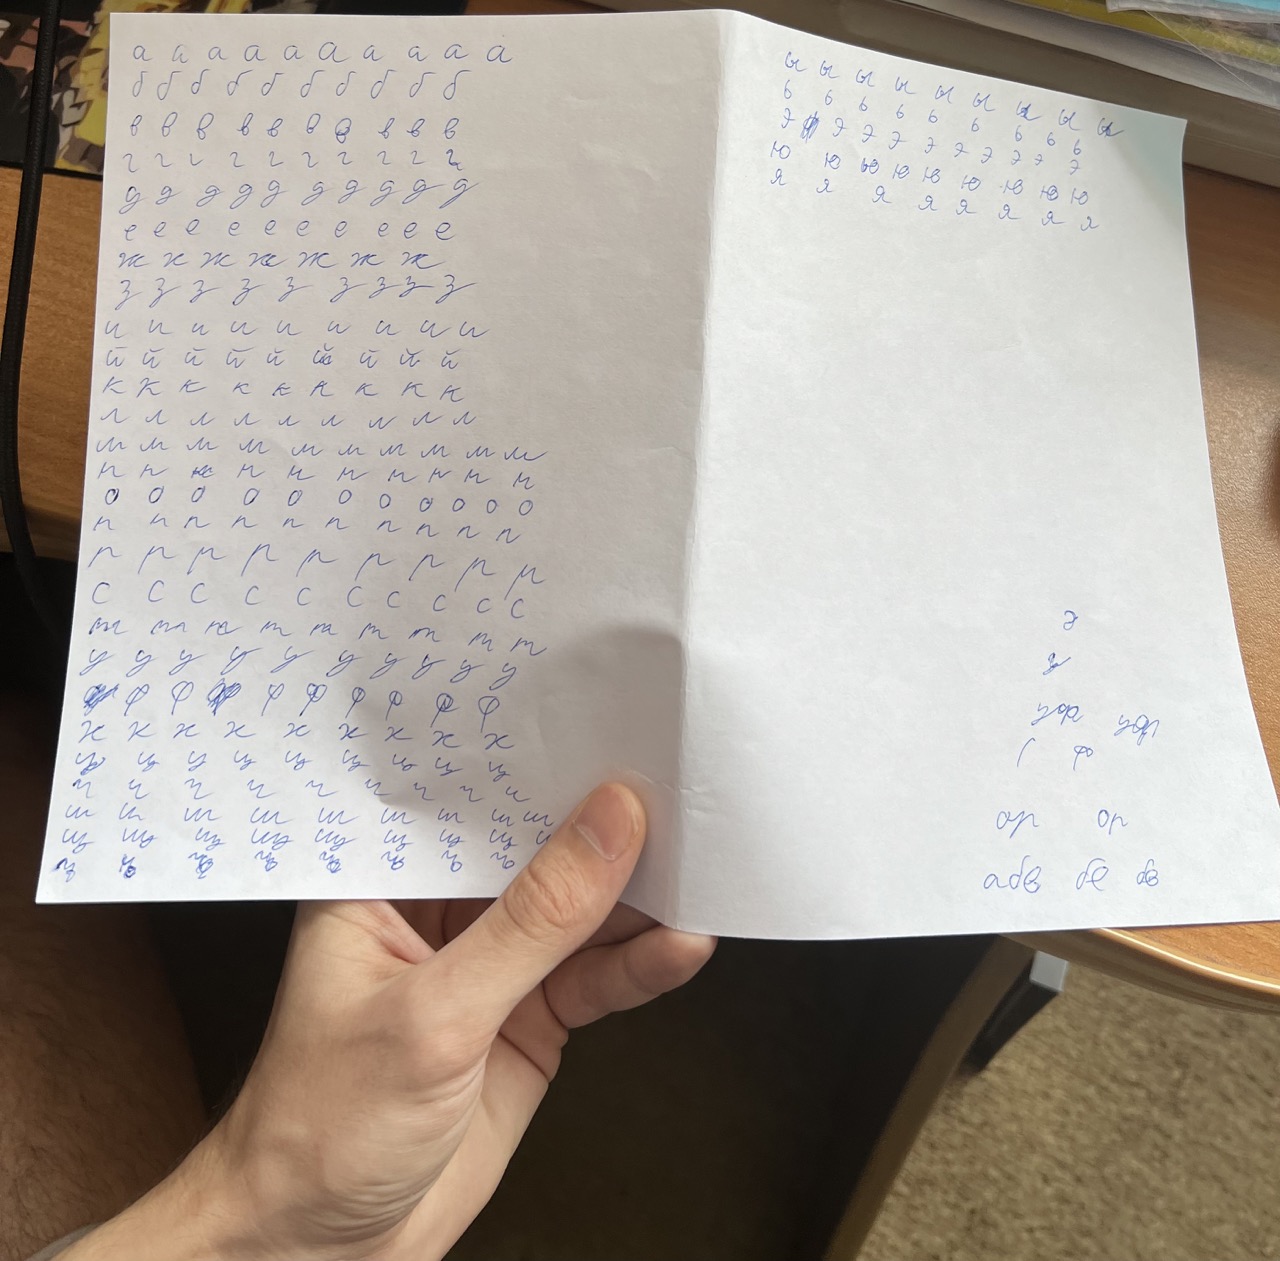 а а а а а а а а а а
б б б б б б б б б б
в в в в в в в в в в
г г г г г г г г г г
д д д д д д д д д д
е е е е е е е е е е
ж ж ж ж ж ж ж
з з з з з з з з з
и и и и и и и и и
й й й й й й й й й
к к к к к к к к к
л л л л л л л л л
м м м м м м м м м м
н н н н н н н н н н
о о о о о о о о о о
п п п п п п п п п п
р р р р р р р р р
с с с с с с с с с с
т т т т т т т т т
у у у у у у у у у у
ф ф ф ф ф ф ф ф
х х х х х х х х х
ц ц ц ц ц ц ц ц ц
ч ч ч ч ч ч ч ч ч
ш ш ш ш ш ш ш ш ш
щ щ щ щ щ щ щ щ
ъ ъ ъ ъ ъ ъ ъ
ы ы ы ы ы ы ы ы ы
ь ь ь ь ь ь ь ь ь
э э э э э э э э э
ю ю ю ю ю ю ю ю ю
я я я я я я я я
э
уфр уфр
ф
ор ор
абв бе бв